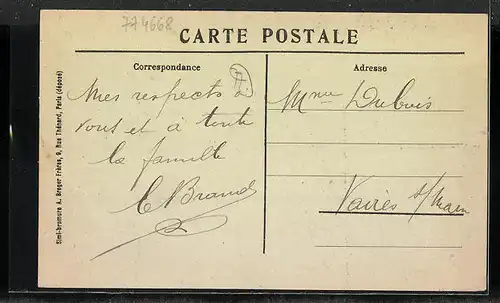 774668
CARTE POSTALE
Correspondance
Adresse
Mes respects à
vous et à toute
la famille
E Brand
Mme Dubois
Vaires s/
Simi-bromure A. Breger Frères, 9, Rue Thénard, Paris (déposé)